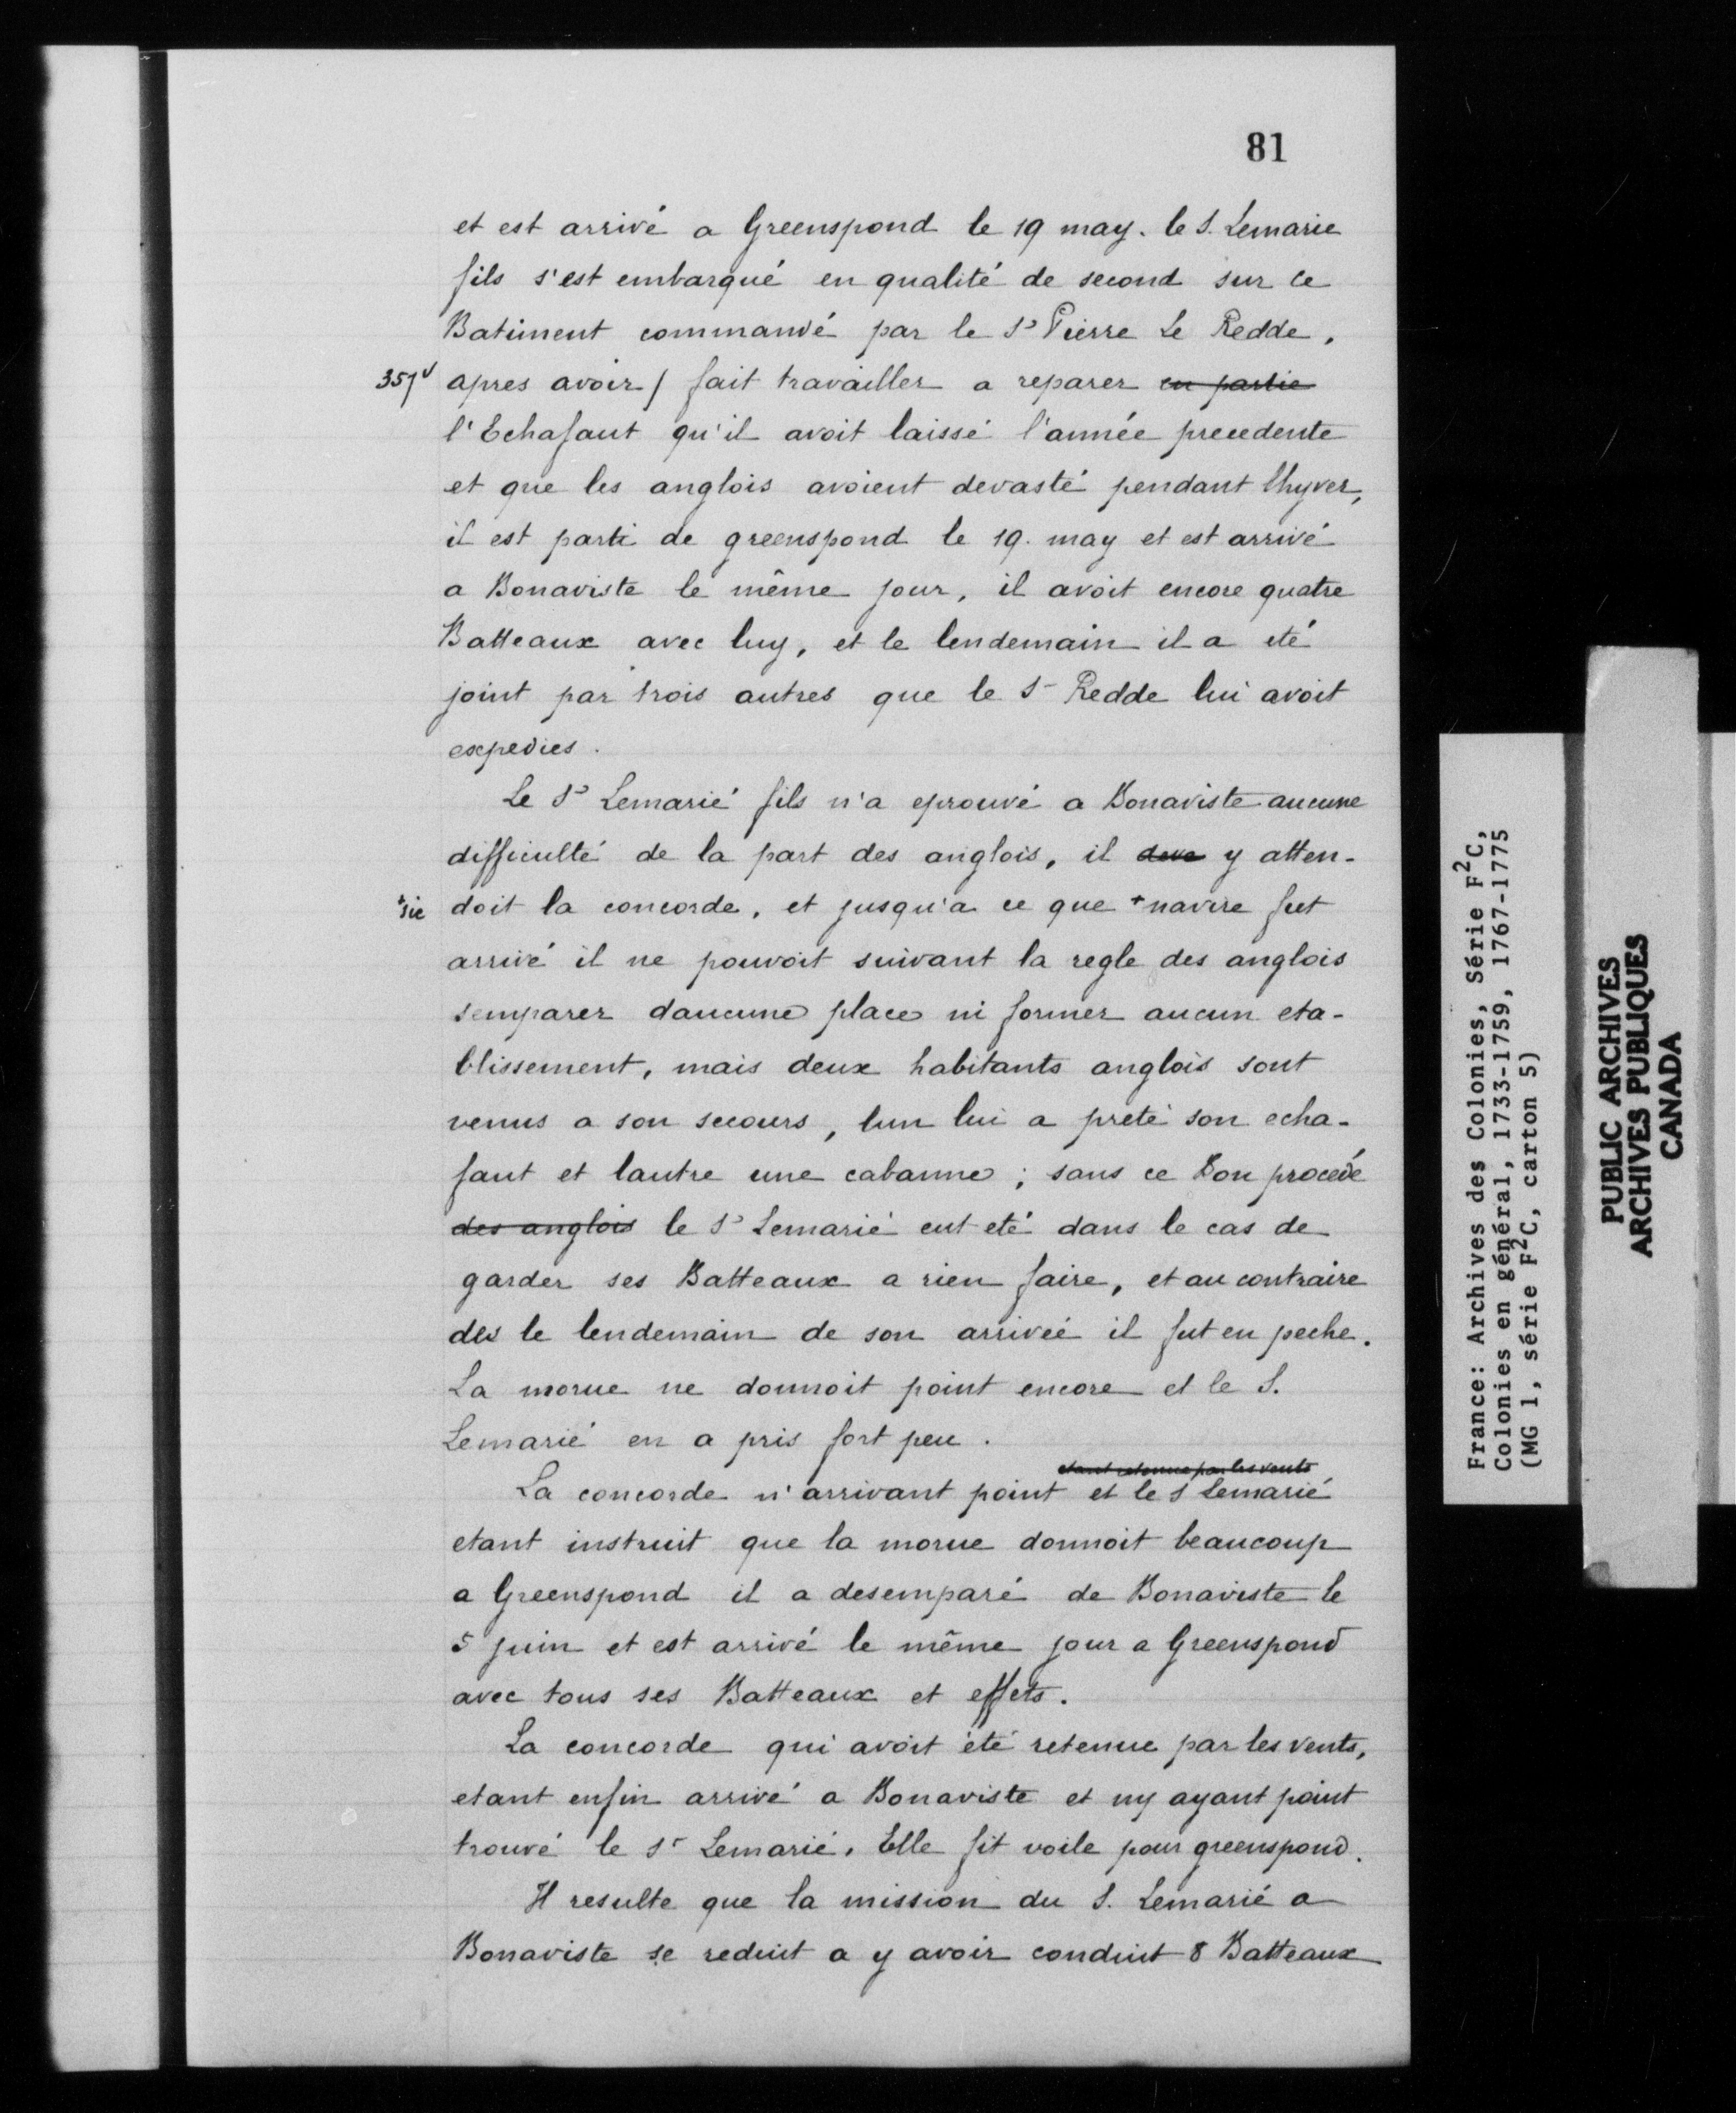 81
et est arrivé a Greenspond le 19 may. le S. Lemarie
fils s'est embarqué en qualité de second sur ce
Batiment commandé par le Sr Pierre Le Redde,
357v apres avoir / fait travailler a reparer en partie
l'Echafaut qu'il avoit laissé l'année precedente
et que les anglois avoient devasté pendant lhyver,
il est parti de greenspond le 19. may et est arrivé
a Bonaviste le même jour, il avoit encore quatre
Batteaux avec luy, et le lendemain il a eté
joint par trois autres que le Sr Redde lui avoit
expedies.
Le Sr Lemarié fils n'a eprouvé a Bonaviste aucune
difficulté de la part des anglois, il deva y atten-
+sic doit la concorde, et jusqu'a ce que + navire fut
arrivé il ne pouvoit suivant la regle des anglois
semparer daucune place ni former aucun eta-
blissement, mais deux habitants anglois sont
venus a son secours, lun lui a preté son echa-
faut et lautre une cabanne; sans ce Bon procedé
des anglois le Sr Lemarié eut eté dans le cas de
garder ses Batteaux a rien faire, et au contraire
des le lendemain de son arriveé il fut en peche.
La morue ne donnoit point encore et le S.
Lemarié en a pris fort peu.
etant retenue par les vents
La concorde n'arrivant point et le S Lemarié
etant instruit que la morue donnoit beaucoup
a Greenspond il a desemparé de Bonaviste le
5 juin et est arrivé le même jour a Greenspond
avec tous ses Batteaux et effets.
La concorde qui avoit été retenue par les vents,
etant enfin arrivé a Bonaviste et ny ayant point
trouvé le Sr Lemarié. Elle fit voile pour greenspond.
Il resulte que la mission du S. Lemarié a
Bonaviste se reduit a y avoir conduit 8 Batteaux
France: Archives des Colonies, Série F2C,
Colonies en général, 1733-1759, 1767-1775
(MG 1, série F2C, carton 5)
PUBLIC ARCHIVES
ARCHIVES PUBLIQUES
CANADA